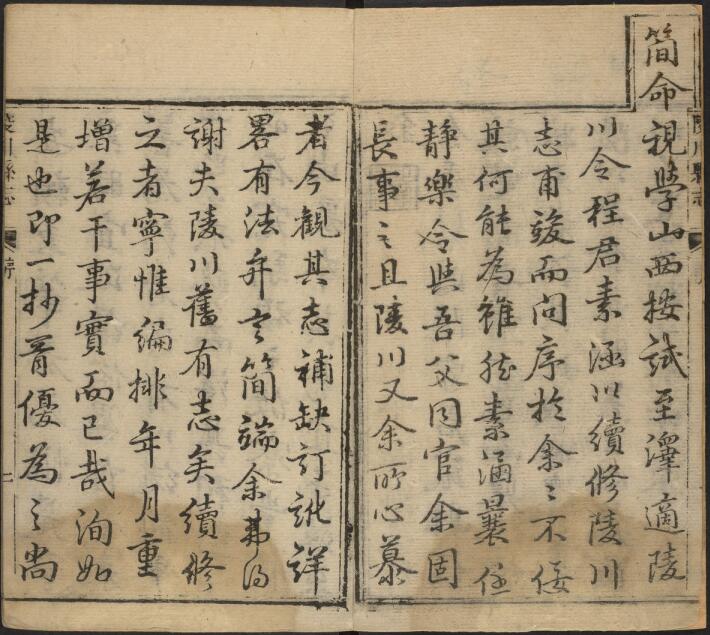 簡命視學山西按試至澤適陵
川令程君素涵以續修陵川
志甫竣而問序於余〻不佞
其何能為雖然素涵曩任
靜樂令與吾父同官余固
長事之且陵川又余所心慕
者今觀其志補缺訂訛詳
畧有法弁之簡端余弗得
謝夫陵川舊有志矣續修
之者寧惟編排年月重
增若干事實而已哉洵如
是也即一抄胥優為之尚
陵川縣志
序